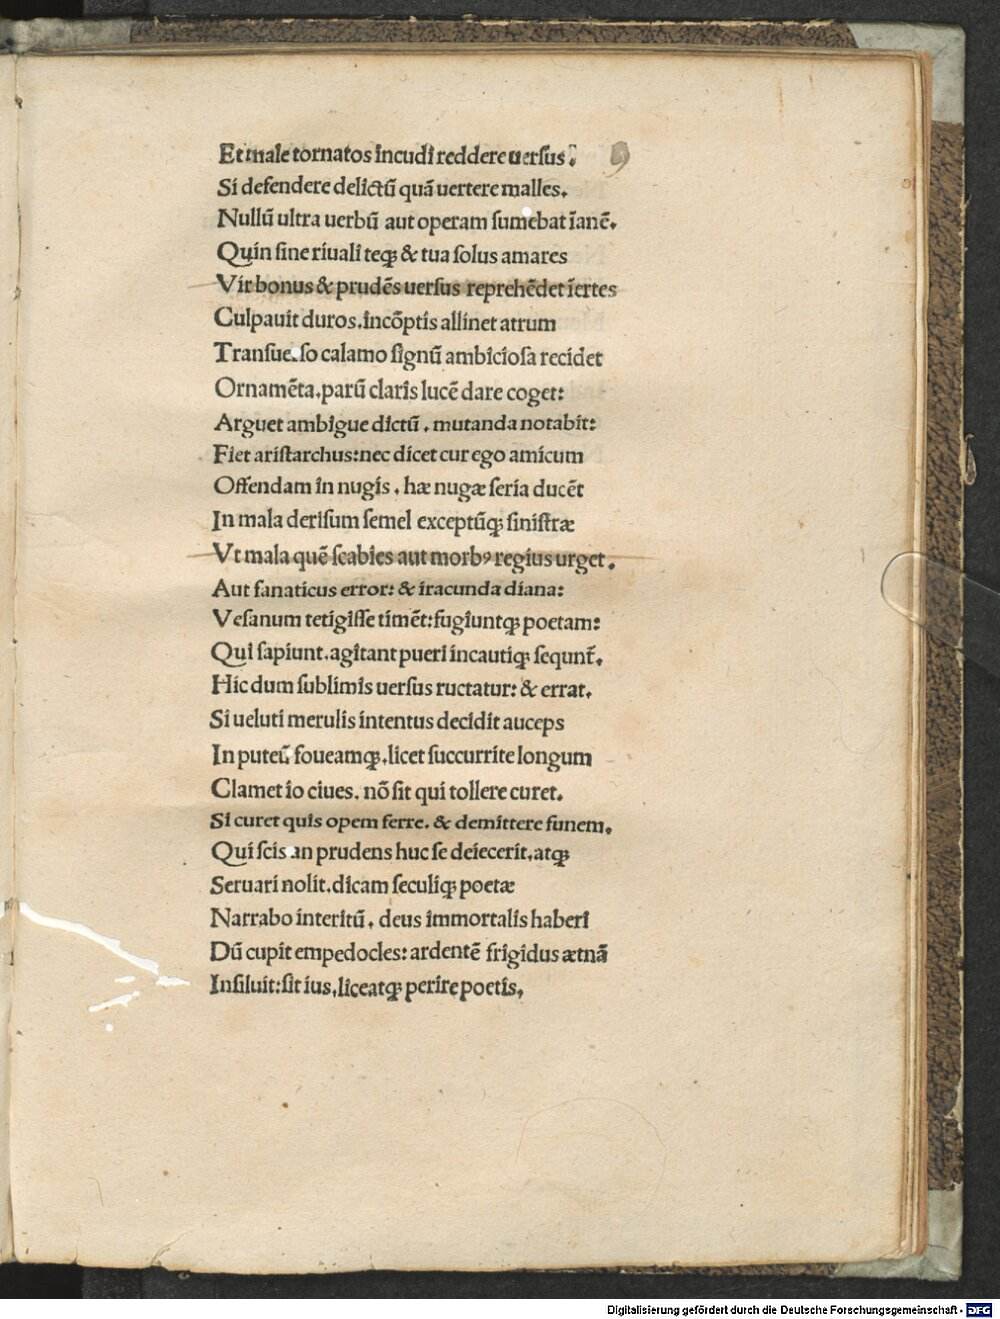 Et male tornatos incudi reddere uersus.
Si defendere delictū quā uertere malles.
Nullū ultra uerbū aut operam sumebat īanē.
Quin sine riuali teqꝫ & tua solus amares
Vir bonus & prudēs uersus reprehēdet īertes
Culpauit duros.incōptis allinet atrum
Transue.so calamo signū ambiciosa recidet
Ornamēta.parū claris lucē dare coget:
Arguet ambigue dictū. mutanda notabit:
Fiet aristarchus:nec dicet cur ego amicum
Offendam in nugis. hæ nugæ seria ducēt
In mala derisum semel exceptūqꝫ sinistræ
Vt mala quē scabies aut morbꝰ regius urget.
Aut fanaticus error: & iracunda diana:
Vesanum tetigisse timēt:fugiuntqꝫ poetam:
Qui sapiunt.agitant pueri incautiqꝫ sequnt̄.
Hic dum sublimis uersus ructatur: & errat.
Si ueluti merulis intentus decidit auceps
In puteū foueamqꝫ.licet succurrite longum
Clamet io ciues. nō sit qui tollere curet.
Si curet quis opem ferre. & demittere funem.
Qui scis an prudens huc se deiecerit.atqꝫ
Seruari nolit.dicam seculiqꝫ poetæ
Narrabo interitū. deus immortalis haberi
Dū cupit empedocles: ardentē frigidus ætnā
Insiluit:sit ius.liceatqꝫ perire poetis.
Digitalisierung gefördert durch die Deutsche Forschungsgemeinschaft - DFG